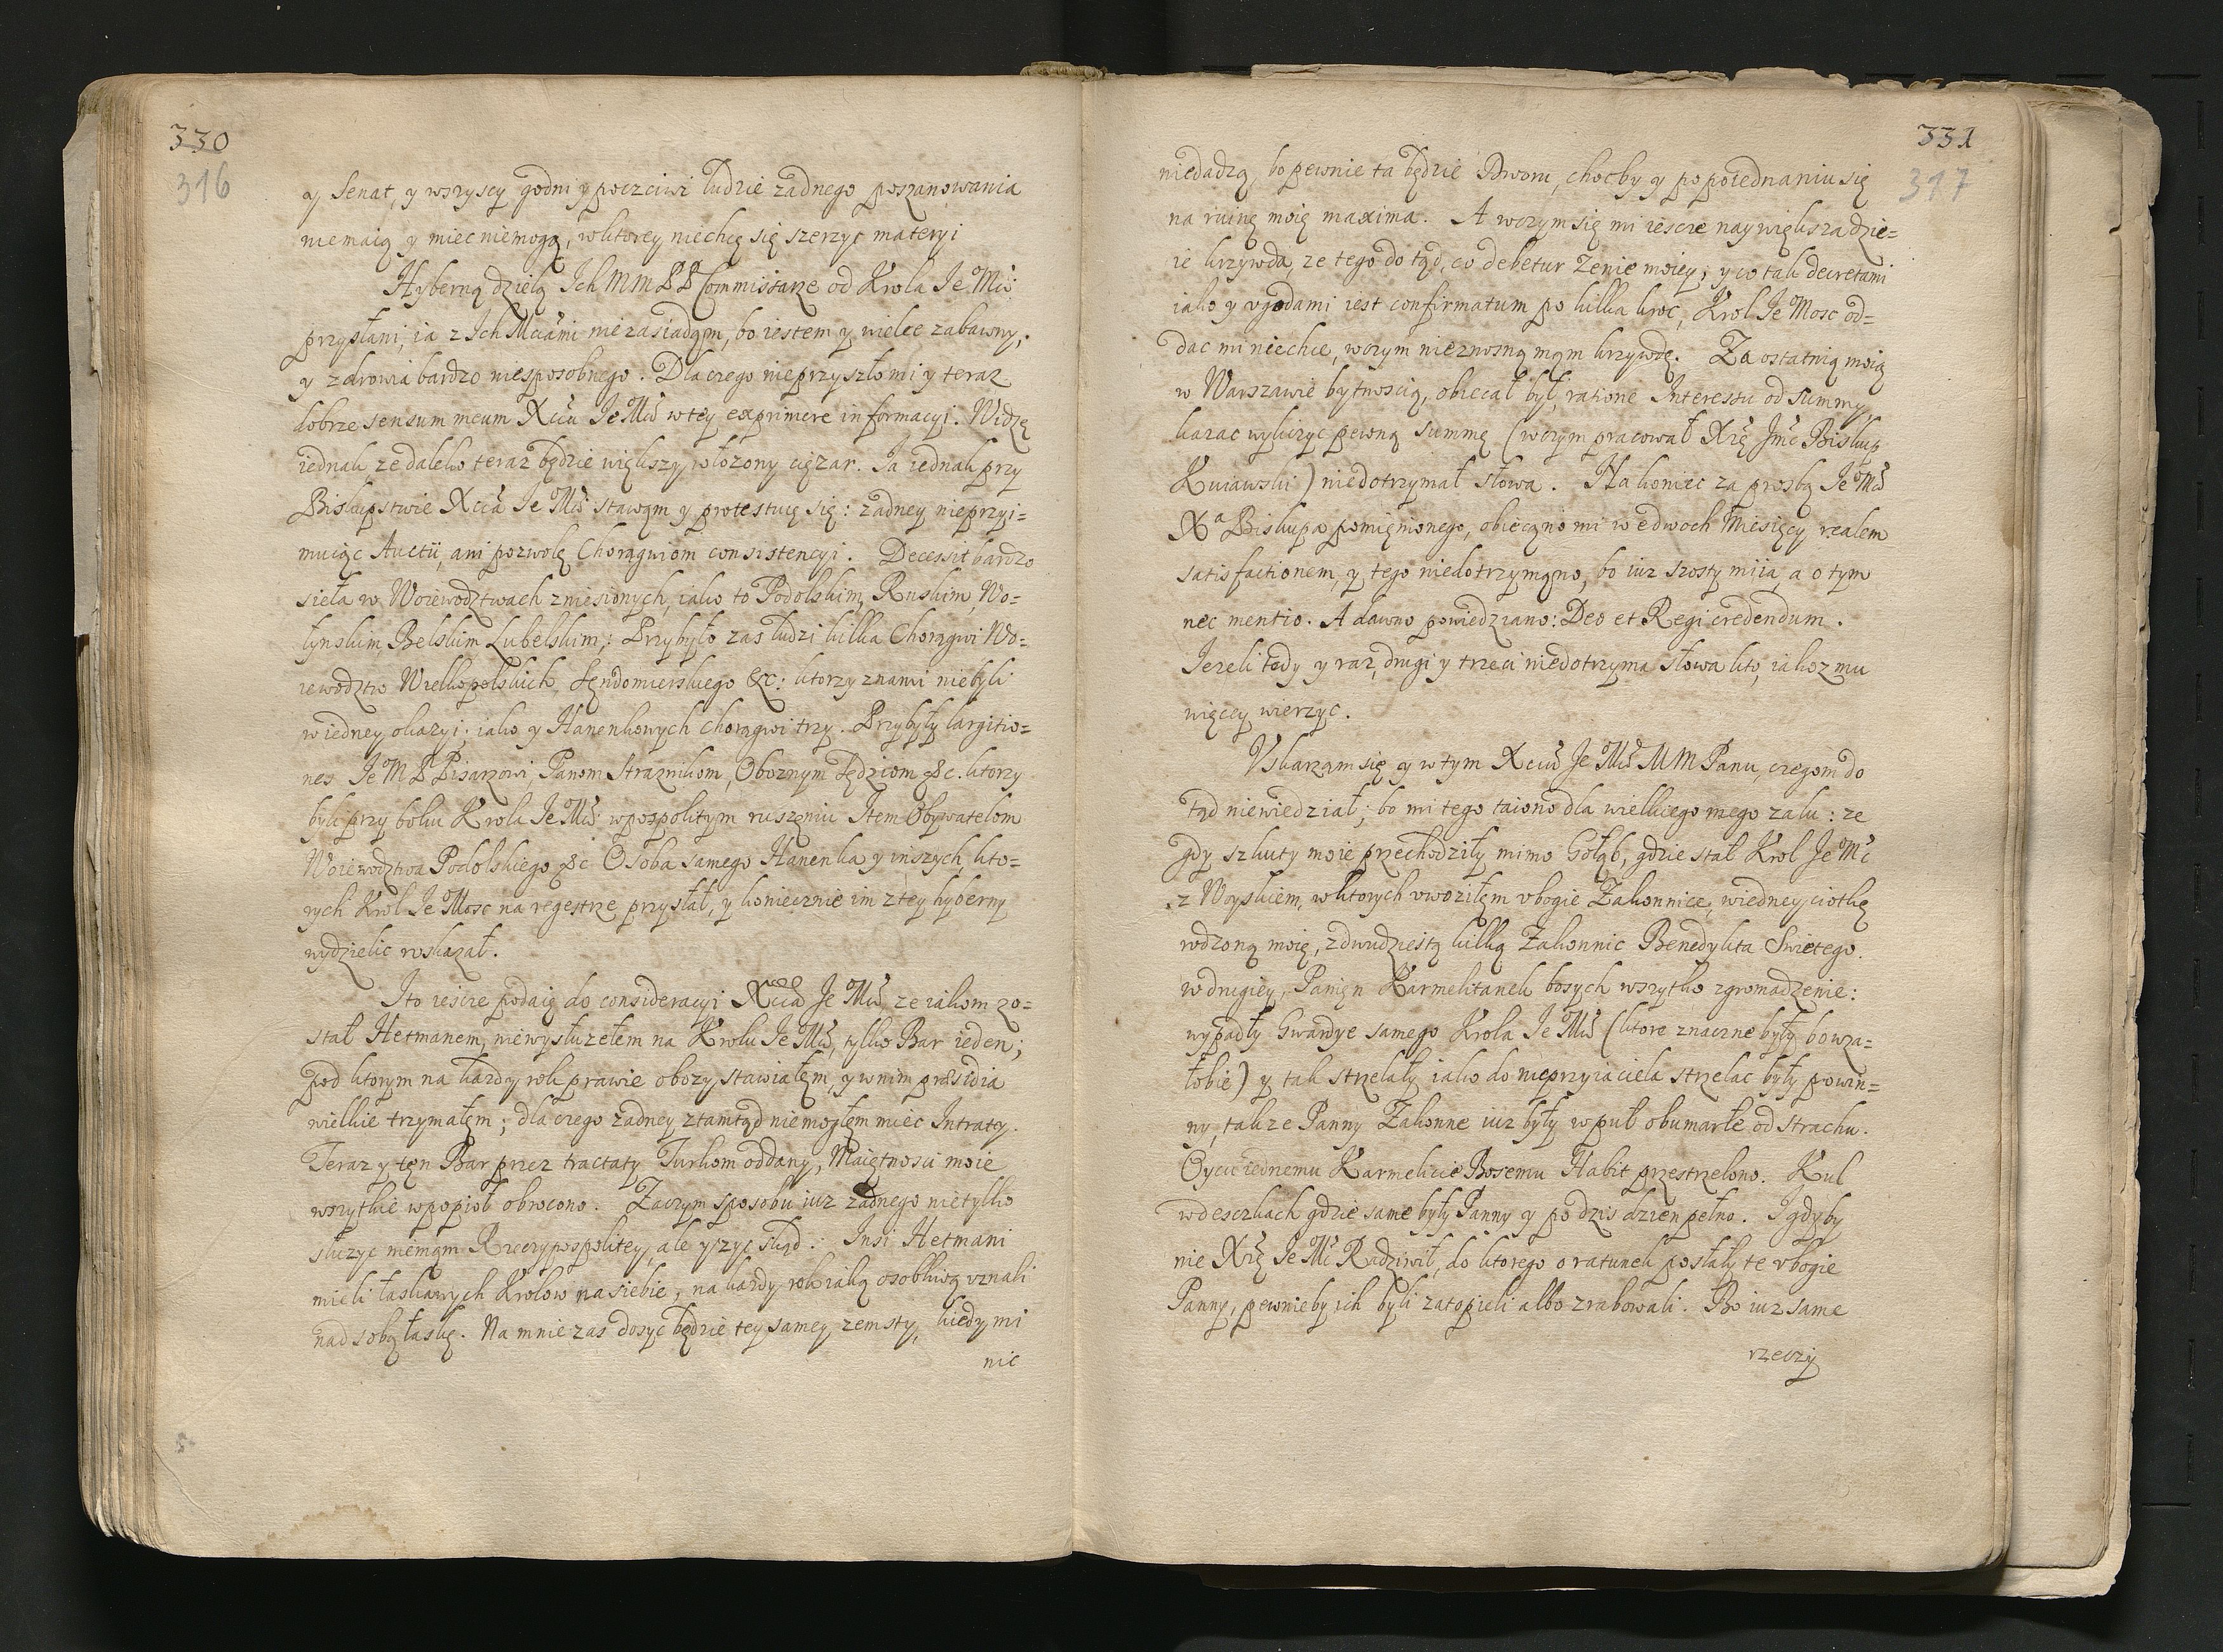 330
316
y Senat, y wszyscy godni y poczciwi ludzie żadnego poszanowania
niemaią y miec niemogą, wktorey niechcę się szerzyc materyi
Hyberną dzielą Ich MM PP Commissarze od Krola Je Mći
przysłani, ia z Ich Mćiami niezasiadam, bo iestem y wielce zabawny,
y zdrowia bardzo niesposobnego. Dlaczego nieprzyszło mi y teraz
dobrze sensum meum Xciu Je Mći wtey exprimere informacyi. Widzę
iednak ze daleko teraz będzie większy włożony ciężar. Ia iednak przy
Biskupstwie Xcia Je Mći stawam y protestuię się: żadney nieprzyi=
muiąc Auctii, ani pozwolę Chorągwiom consistencyi. Decessit bardzo
sieła w Woiewodztwach zniesionych, iako to Podolskim, Ruskim, Wo=
łynskim, Belskim Lubelskim; Przybyło zas ludzi kilka Chorągwi Wo=
iewodztw Wielkopolskich, Sendomierskiego &c: ktorzy znami niebyli
wiedney okazyi; iako y Hanenkowych chorągwi trzy. Przybyły largitio=
nes Je M P Pisarzowi, Panom Straznikom, Oboznym Sędziom &c. ktorzy
byli przy boku Krola Je Mći wpospolitym ruszeniu Item Obywatelom
Woiewodztwa Podolskiego &c Osoba samego Hanenka y inszych, kto=
rych Krol Je Mosc na regestrze przysłał, y koniecznie im ztey hyberny
wydzielic roskazał.
I to ieszcze podaię do consideracyi Xcia Je Mći, ze iakom zo=
stał Hetmanem, niewysłużełem na Krolu Je Mći, tylko Bar ieden;
pod ktorym na każdy rok prawie obozy stawiałem, y wnim præsidia
wielkie trzymałem; dlaczego żadney ztamtąd niemogłem miec Intraty.
Teraz y ten Bar przez tractaty Turkom oddany, Maiętnosci moie
wszytkie wpopioł obrocono. Zaczym sposobu iuz żadnego nietylko
służyc niemąm Rzeczypospolitey, ale yżyc skąd. Insi Hetmani
mieli łaskawych Krolow na siebie, na każdy rok iaką osobliwą uznali
nad sobą łaskę. Na mnie zas dosyc będzie tey samey zemsty, kiedy mi
nic
331
317
niedadzą, bo pewnie ta będzie Dworu, chocby y po poiednaniu się
na ruinę moię maxima. A wczym się mi ieszcze naywiększa dzie=
ie krzywda, ze tego do tąd, co debetur Żenie moiey, y co tak decretami
iako y ugodami iest confirmatum po kilka kroc, Krol Je Mosc od=
dac mi niechce, wczym nieznosną mąm krzywdę. Za ostatnią moią
w Warszawie bytnoscią, obiecał był, ratione Interessu od summy,
kazac wyliczyc pewną summę (wczym pracował Xże Jmć Biskup
Kuiawski) niedotrzymał słowa. Na koniec za prosbą Je Mći
Xa Biskupa pomięnionego, obiecąno mi we dwoch miesięcy, realem
satisfactionem, y tego niedotrzymąno, bo iuz szosty miia, a o tym
nec mentio. A dawno powiedziano: Deo et Regi credendum.
Ieżeli tedy y raz, drugi y trzeci niedotrzyma słowa kto, iakoz mu
więcey wierzyc.
Uskarzam się y w tym Xciu Je Mći MM Panu, czegom do
tąd niewiedział; bo mi tego taiono dla wielkiego mego żalu: ze
gdy szkuty moie przechodziły mimo Gołąb, gdzie stał Krol Je Mć
z Woyskiem, wktorych uwoziłem ubogie Zakonnice, wiedney ciotkę
rodzoną moię, zdwudziestą kilką Zakonnic Benedykta Swiętego.
wdrugiey, Panięn Karmelitanek bosych wszytko zgromadzenie:
wypadły Gwardye samego Krola Je Mći (ktore znaczne były bo wża=
łobie) y tak strzelały iako do nieprzyiaciela strzelac były powin=
ny, tak ze Panny Zakonne iuz były wpuł obumarłe od strachu.
Oycu iednemu Karmelicie Bosemu Habit przestrzelono. Kul
wdesczkach gdzie same były Panny y po dzis dzien pełno. I gdyby
nie Xże Je Mć Radziwił, do ktorego o ratunek posłały te ubogie
Panny, pewnieby ich byli zatopieli albo zrabowali. Bo iuz same
rzeczy